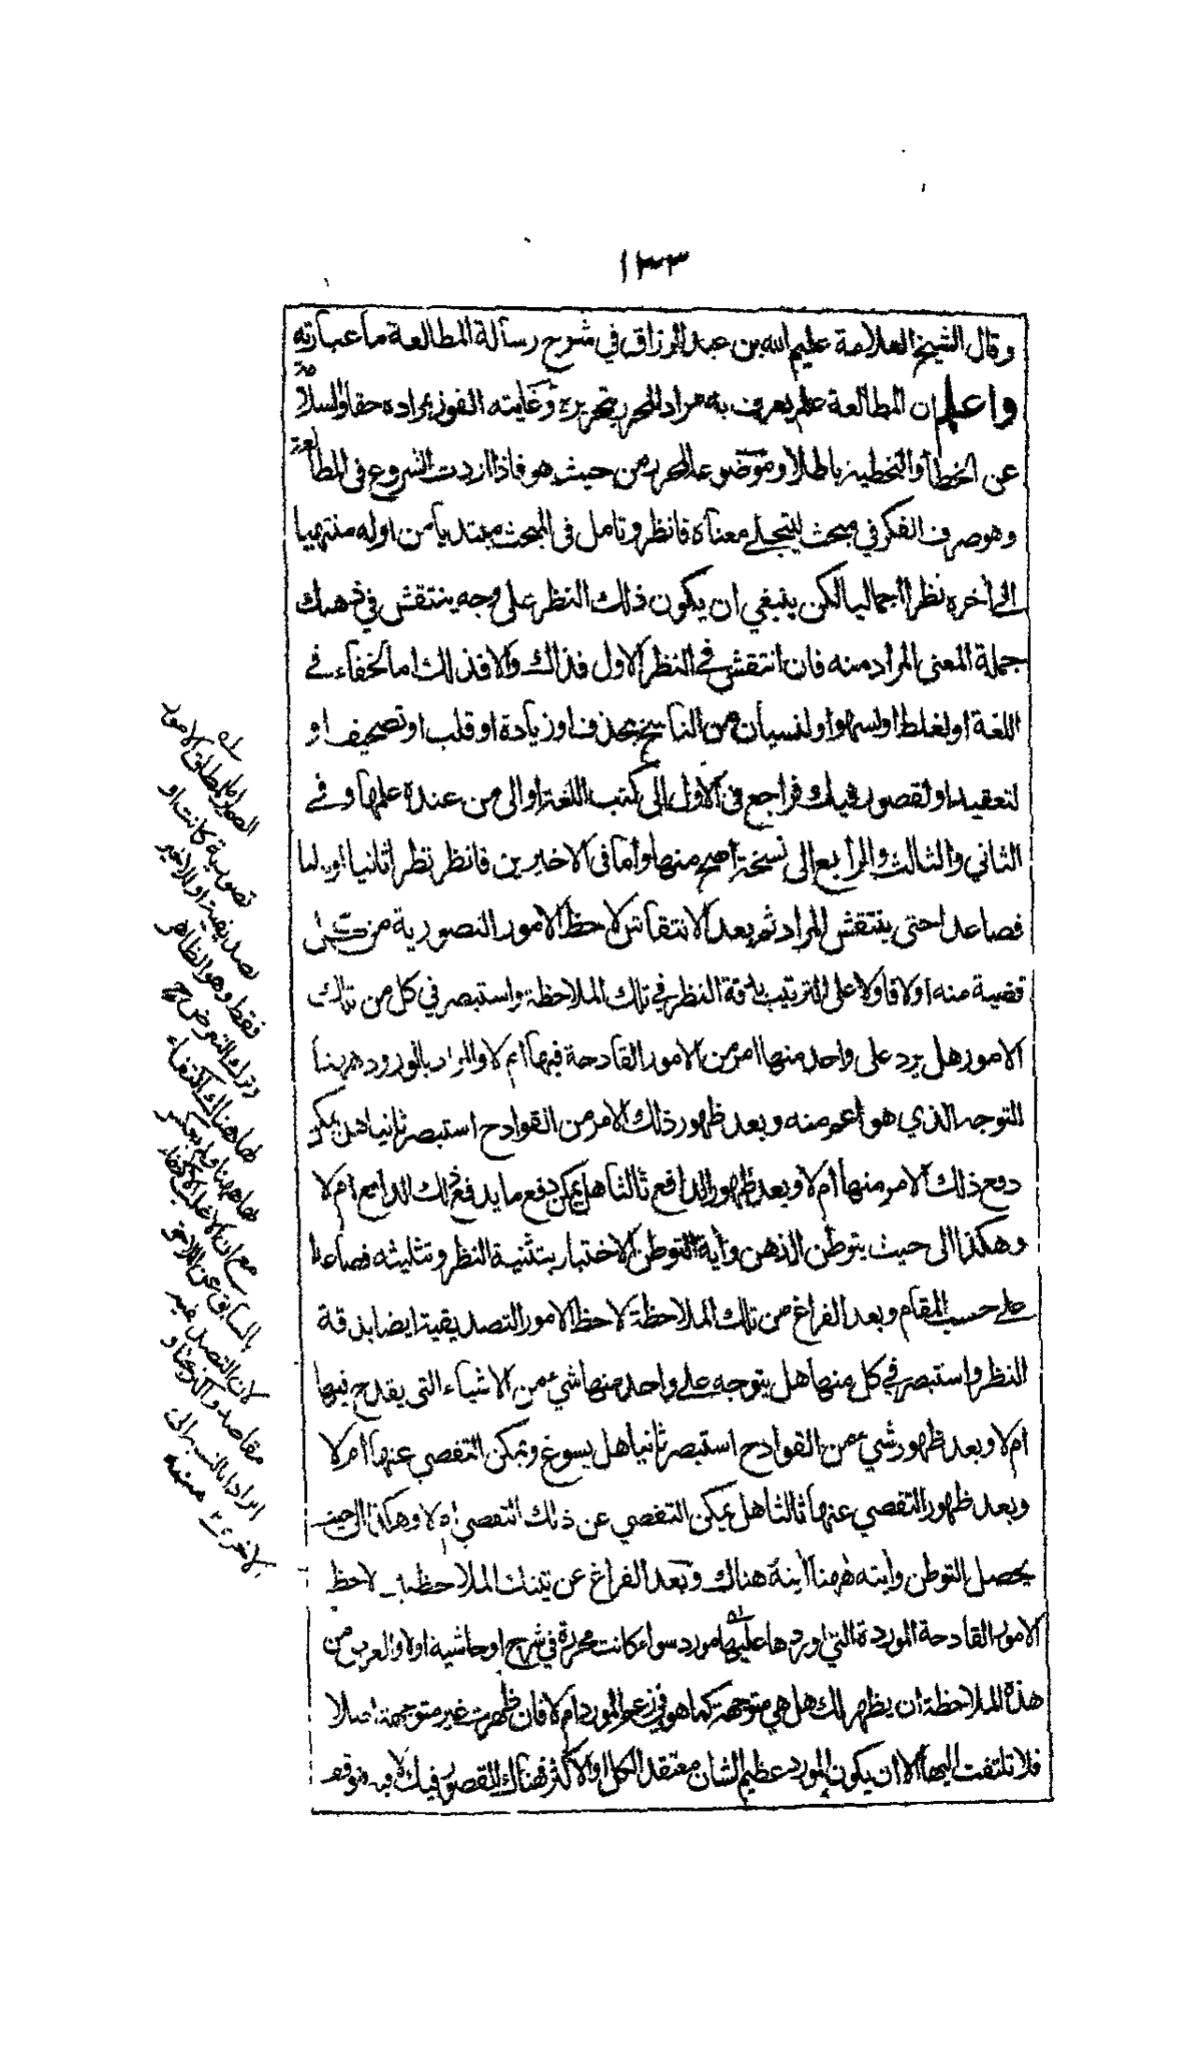 ١٣٣
وقال الشيخ العلامة عليم الله بن عبد الرزاق في شرح رسالة المطالعة ما عبارته
واعلم ان المطالعة علم يعرف به مراد المحرر بتحريره وغايته الفوز بمراده حقا والسلامة
عن الخطأ والتخطية باطلا وموضوعه المحرر من حيث هو فاذا اردت الشروع في المطالعة
وهو صرف الفكر في مبحث ليتجلى معناه فانظر وتامل في المبحث مبتديا من اوله منتهيا
الى آخره نظرا اجماليا لكن ينبغي ان يكون ذلك النظر على وجه ينتقش في ذهنك
جملة المعنى المراد منه فان انتقش في النظر الاول فذاك والا فذلك اما لخفاء في
اللغة او لغلط او لسهو او لنسيان من الناسخ بحذف او زيادة او قلب او تصحيف او
لتعقيد او لقصور فيك فراجع في الاول الى كتب اللغة او الى من عنده علمها وفي
الثاني والثالث والرابع الى نسخة اصح منها واما في الاخيرين فانظر نظرا ثانيا او ثالثا
فصاعدا حتى ينتقش المراد ثم بعد الانتقاش لاحظ الامور التصورية من كل
قضية منه اولا فاولا على الترتيب بدقة النظر في تلك الملاحظة واستبصر في كل من تلك
الامور هل يرد على واحد منها امر من الامور القادحة فيها ام لا والمراد بالورود ههنا
التوجه الذي هو اعم منه وبعد ظهور ذلك الامر من القوادح استبصر ثانيا هل يمكن
دفع ذلك الامر منها ام لا وبعد ظهور الدافع ثالثا هل يمكن دفع ما يدفع ذلك الدافع ام لا
وهكذا الى حيث يتوطن الذهن وآية التوطن الاختبار بتثنية النظر وتثليثه فصاعدا
على حسب المقام وبعد الفراغ من تلك الملاحظة لاحظ الامور التصديقية ايضا بدقة
النظر واستبصر في كل منها هل يتوجه على واحد منها شيء من الاشياء التي يقدح فيها
ام لا وبعد ظهور شيء من القوادح استبصر ثانيا هل يسوغ ويمكن التفصي عنها ام لا
وبعد ظهور التفصي عنها ثالثا هل يمكن التفصي عن ذلك التفصي ام لا وهكذا الى حيث
يحصل التوطن وآيته ههنا آيته هناك وبعد الفراغ عن تينك الملاحظتين لاحظ
الامور القادحة الموردة التي اوردها عليها مورد سواء كانت محررة في شرح او حاشية اولا والغرض من
هذه الملاحظة ان يظهر لك هل هي متوجهة كما هو في زعم المورد ام لا فان ظهرت غير متوجهة اصلا
فلا تلتفت اليها الا ان يكون المورد عظيم الشان معتقد الكل او الاكثر فهناك القصور فيك لا فيه فتوقف
مطلق الامور
تصورية كانت او
تصديقية او الاخير
فقط وهو الظاهر
وترك التعرض ح
لها هناك اكتفاء
لها ههنا ولم يعكس
السابق عن اللاحق
لان التصديقية
مقاصد واكثر
ايرادا بالنسبة الى
الاخرى ١٢ منه